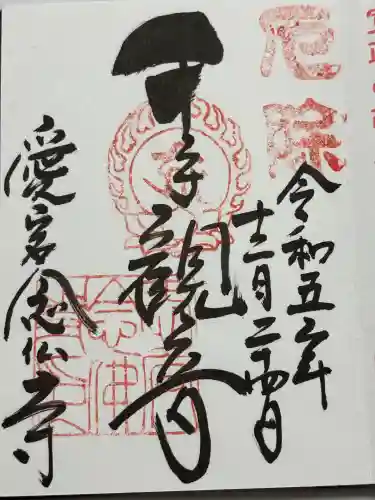 厄除
令和五年
十二月二十四日
千手觀音
愛宕念仏寺